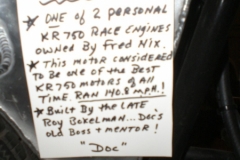 * ONE OF 2 PERSONAL
KR750 RACE ENGINES
OWNED BY FRED NIX.
* THIS MOTOR CONSIDERED
TO BE ONE OF THE BEST
KR750 MOTORS OF ALL
TIME. RAN 140.8 M.P.H.!
* BUILT BY THE LATE
ROY BOKELMAN... DOC'S
OLD BOSS + MENTOR!
"DOC"